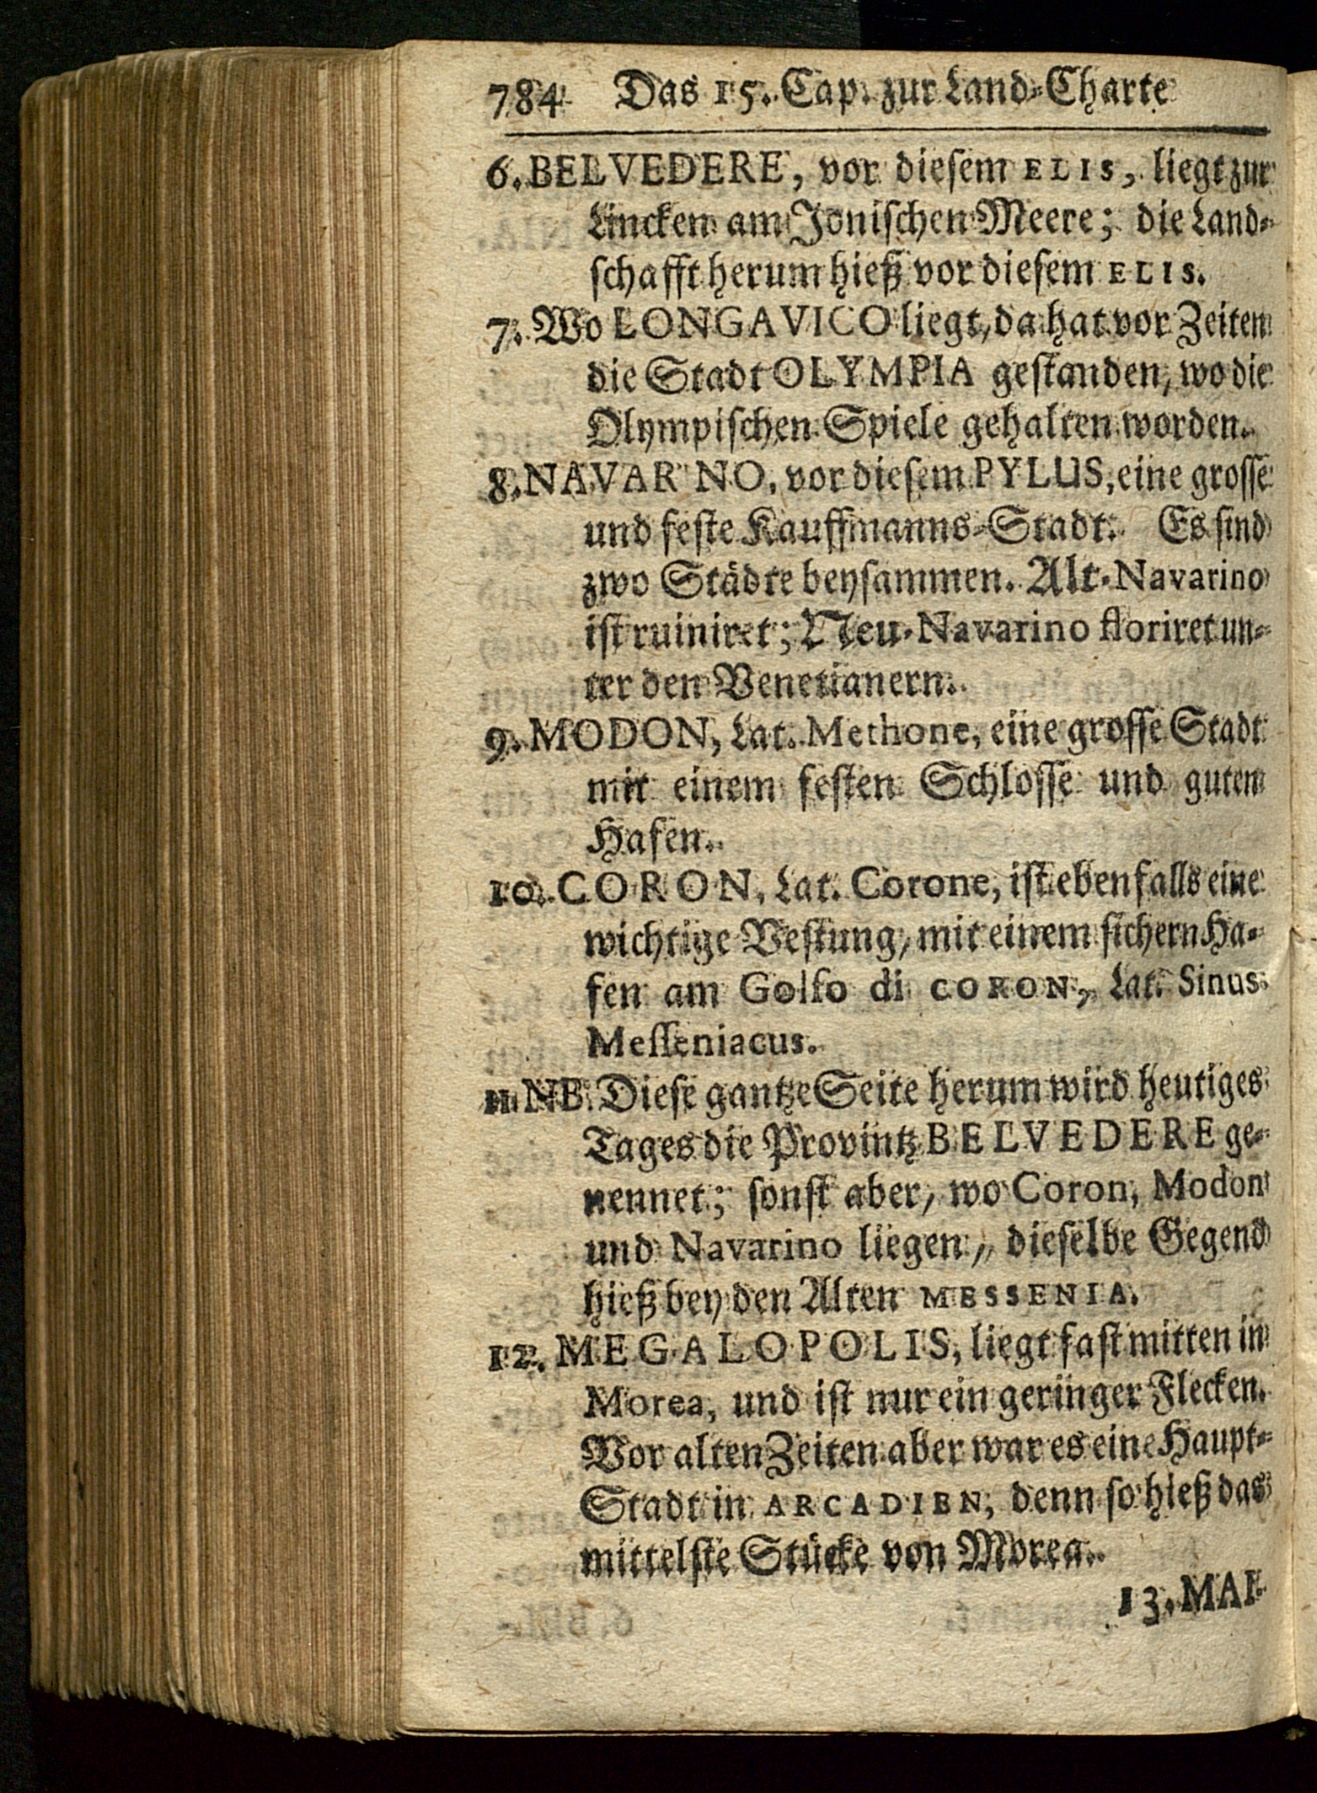 784 Das 15. Cap. zur Land-Charte
6. BELVEDERE, vor diesem ELIS, liegt zur
Lincken am Jonischen Meere; die Land-
schafft herum hieß vor diesem ELIS.
7. Wo LONGAVICO liegt, da hat vor Zeiten
die Stadt OLYMPIA gestanden, wo die
Olympischen Spiele gehalten worden.
8. NAVARINO, vor diesem PYLUS, eine grosse
und feste Kauffmanns-Stadt. Es sind
zwo Städte beysammen. Alt-Navarino
ist ruiniret; Neu-Navarino floriret un-
ter den Venetianern.
9. MODON, Lat. Methone, eine grosse Stadt
mit einem festen Schlosse und guten
Hafen.
10. CORON, Lat. Corone, ist ebenfalls eine
wichtige Vestung, mit einem sichern Ha-
fen am Golfo di CORON, Lat. Sinus
Messeniacus.
11. NB. Diese gantze Seite herum wird heutiges
Tages die Provintz BELVEDERE ge-
nennet; sonst aber, wo Coron, Modon
und Navarino liegen, dieselbe Gegend
hieß bey den Alten MESSENIA.
12. MEGALOPOLIS, liegt fast mitten in
Morea, und ist nur ein geringer Flecken.
Vor alten Zeiten aber war es eine Haupt-
Stadt in ARCADIEN, denn so hieß das
mittelste Stücke von Morea.
13. MAI-